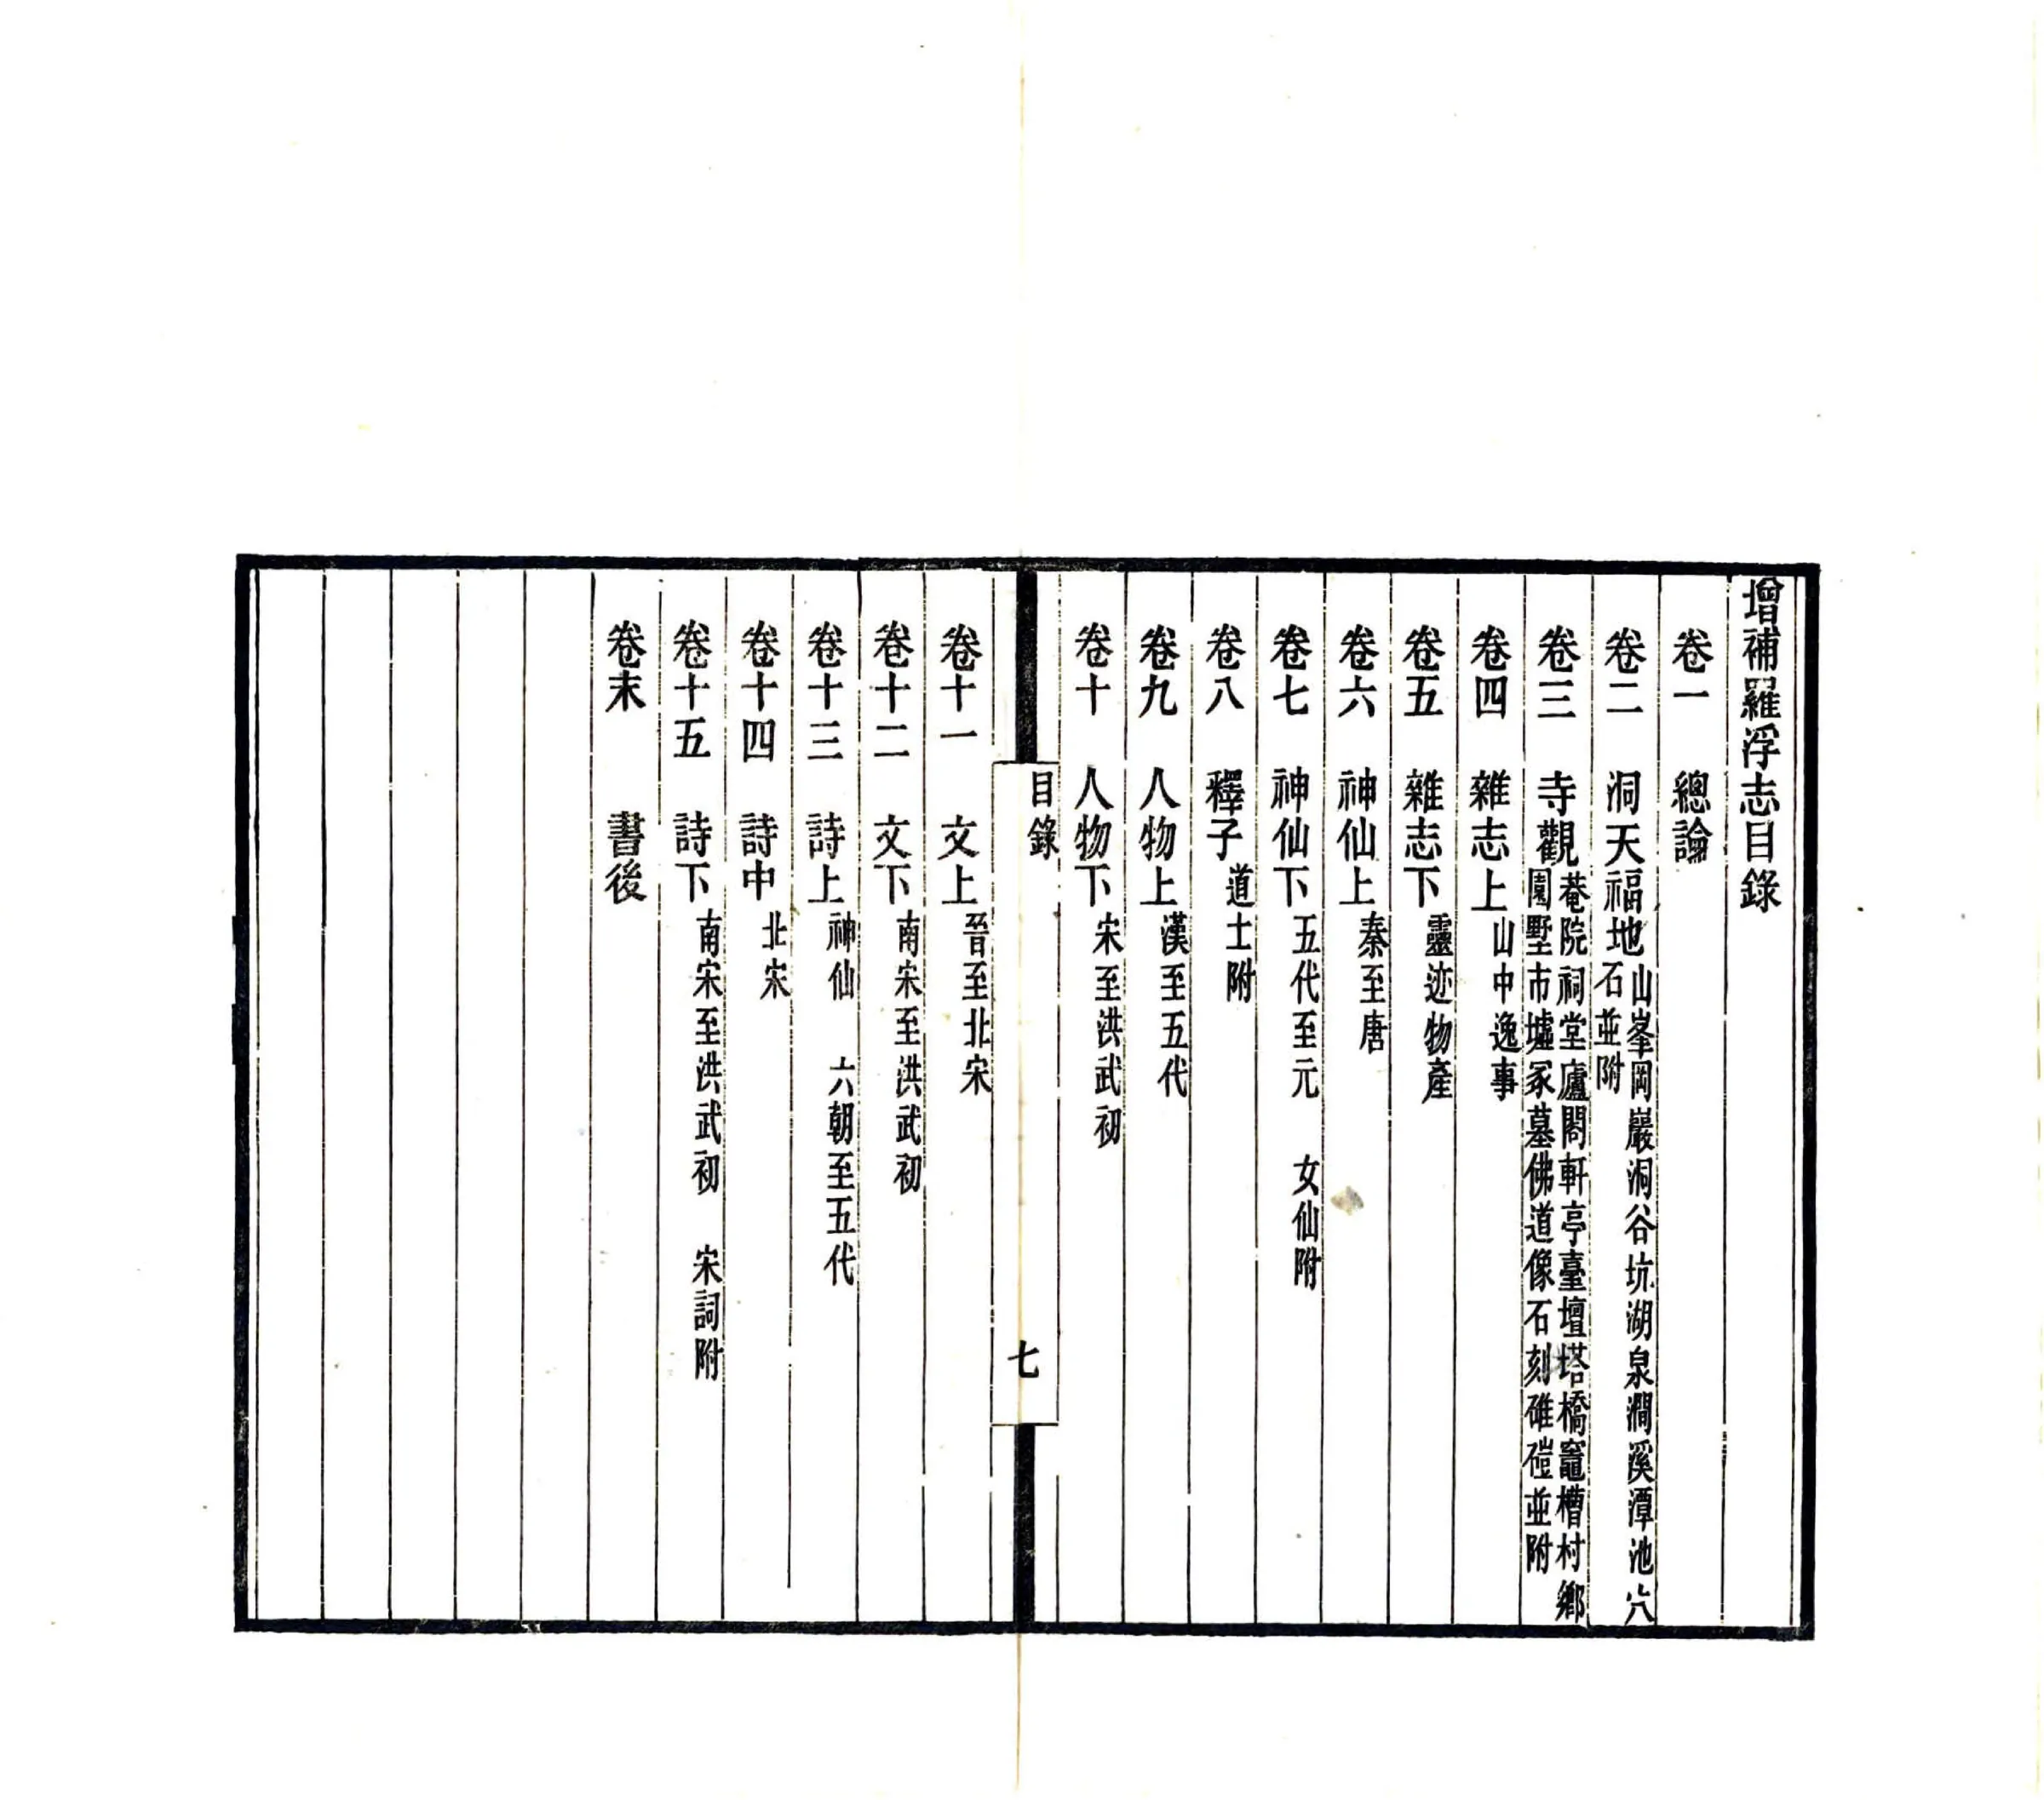 增補羅浮志目錄
卷一　總論
卷二　洞天福地山峯岡巖洞谷坑湖泉澗溪潭池穴
石並附
卷三　寺觀菴院祠堂廬閣軒亭臺壇塔橋竈槽村鄉
園墅市墟冢墓佛道像石刻碓磑並附
卷四　雜志上山中逸事
卷五　雜志下靈迹物產
卷六　神仙上秦至唐
卷七　神仙下五代至元　女仙附
卷八　釋子道士附
卷九　人物上漢至五代
卷十　人物下宋至洪武初
目錄
七
卷十一　文上晉至北宋
卷十二　文下南宋至洪武初
卷十三　詩上神仙　六朝至五代
卷十四　詩中北宋
卷十五　詩下南宋至洪武初　宋詞附
卷末　書後